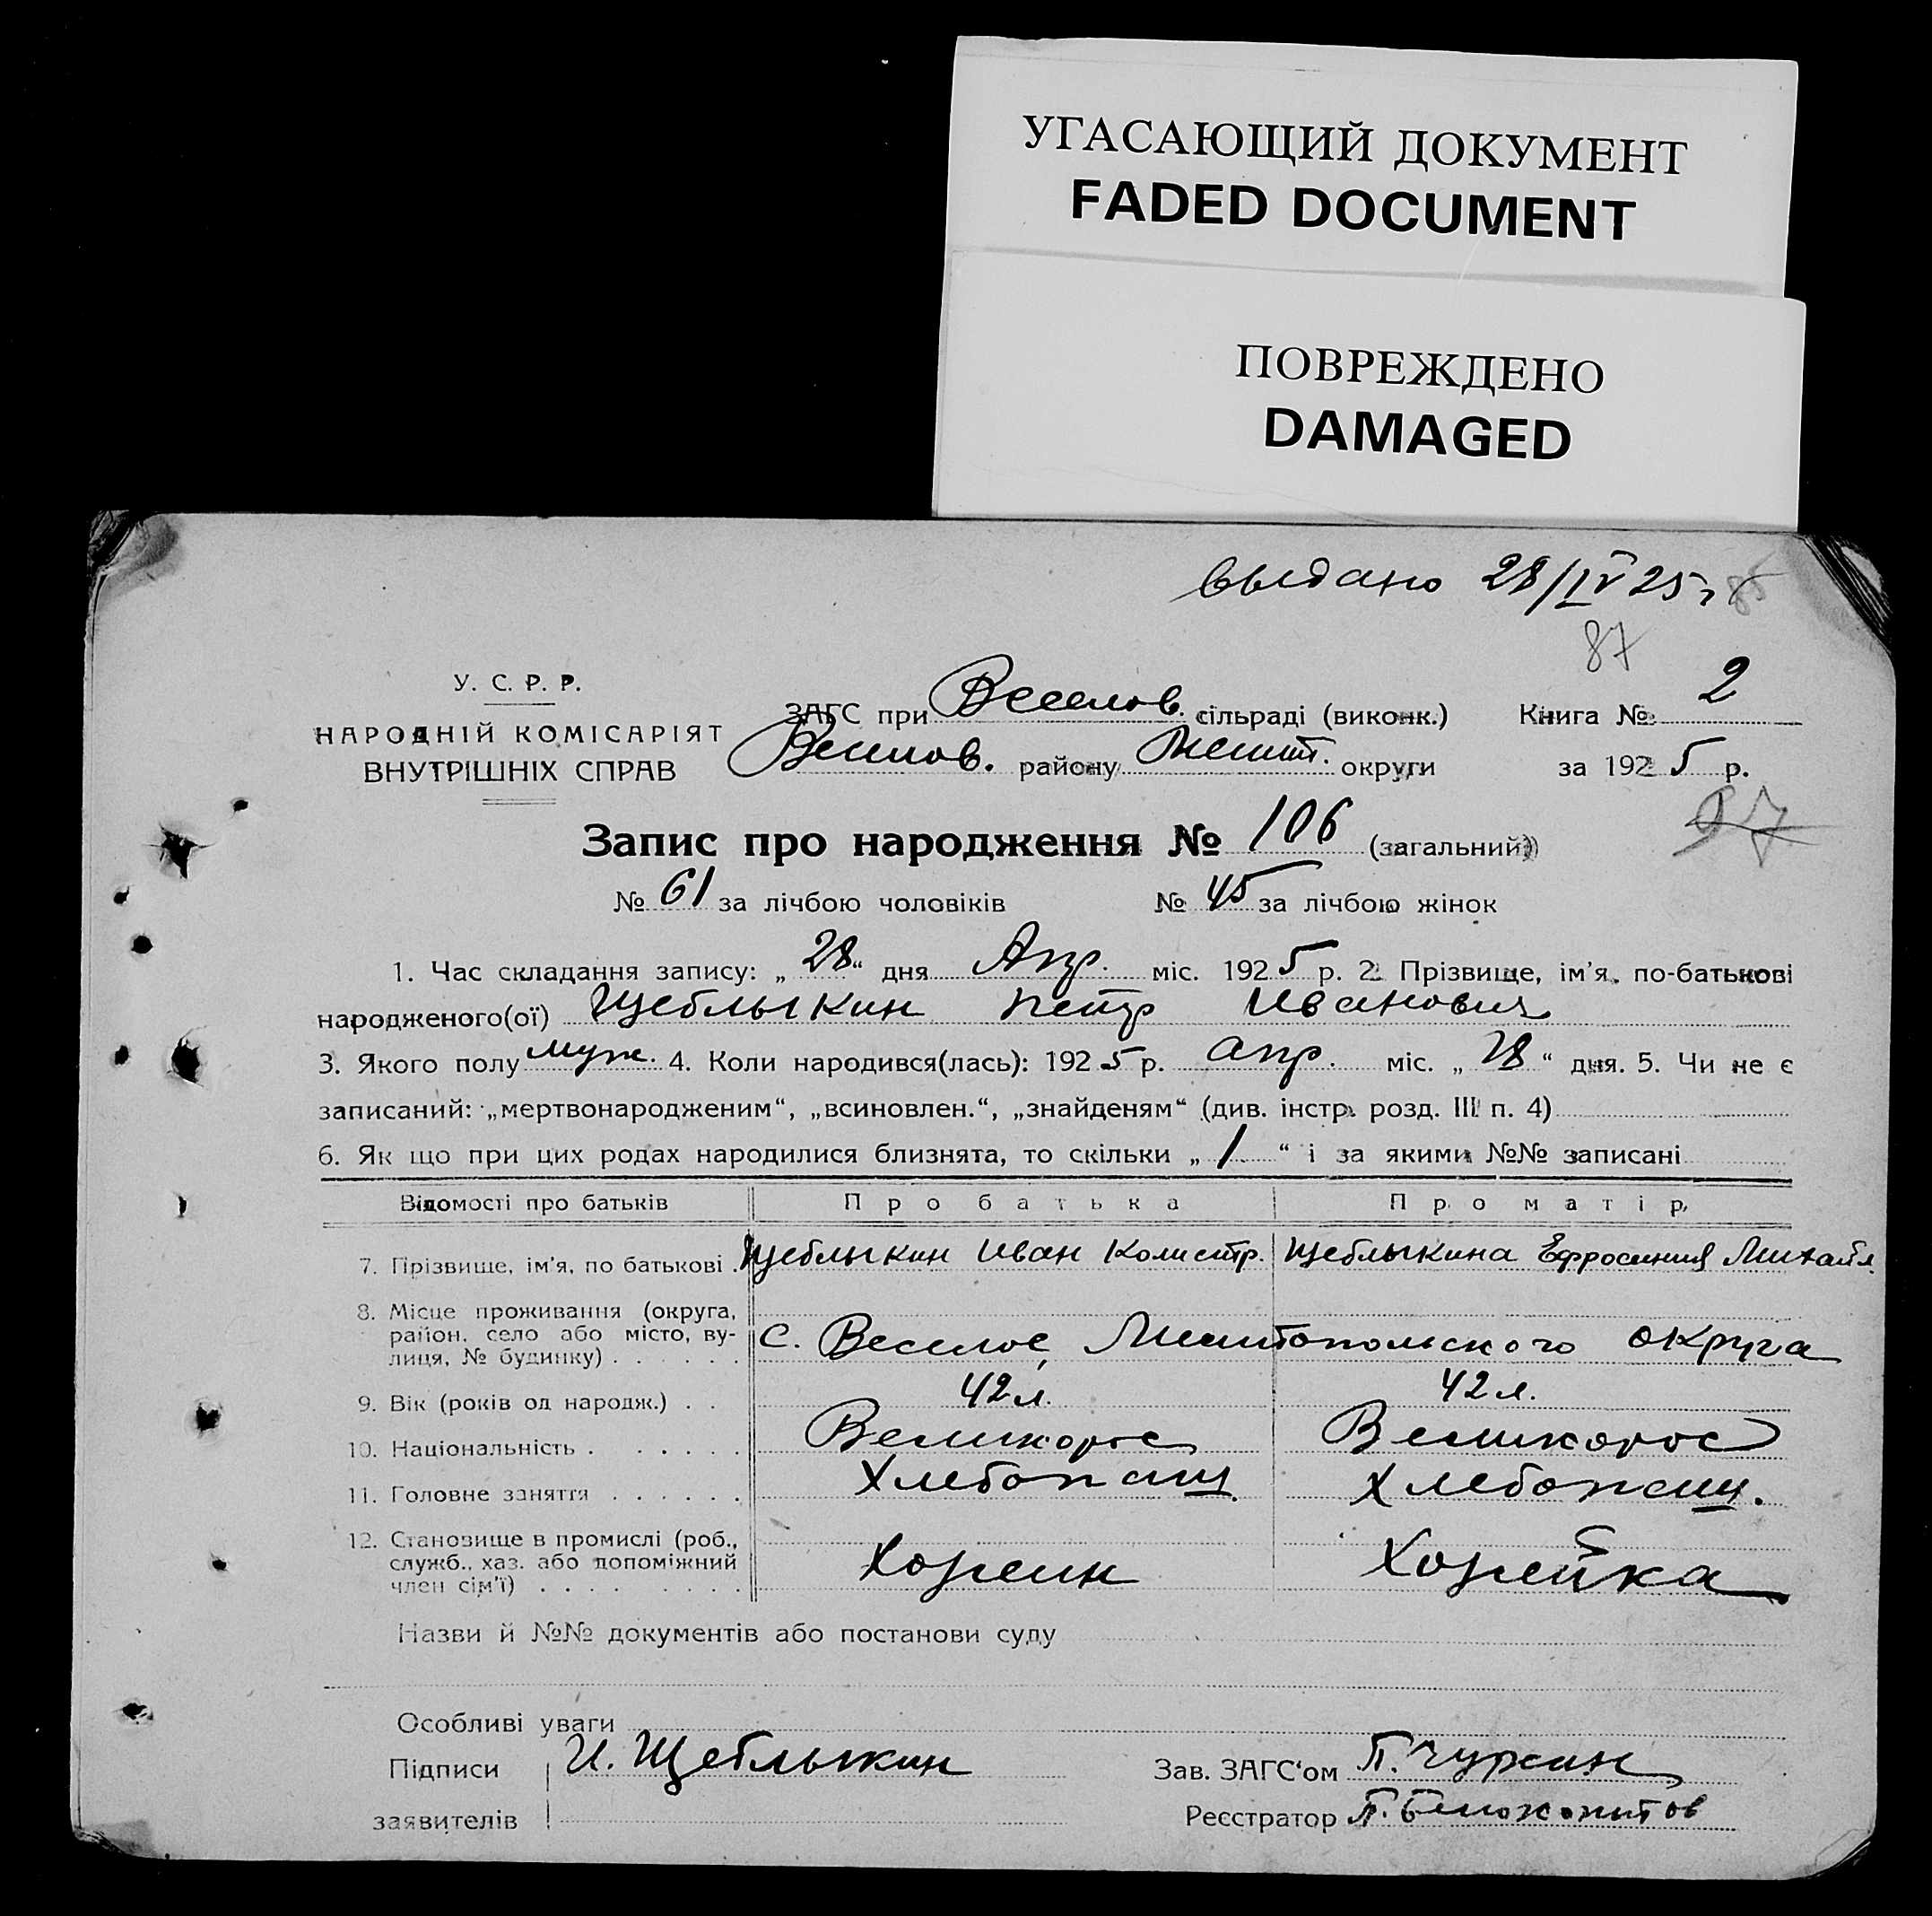 УГАСАЮЩИЙ ДОКУМЕНТ
FADED DOCUMENT
ПОВРЕЖДЕНО
DAMAGED
выдано 28/IV 25 г 85
87
У. С. Р. Р.
НАРОДНІЙ КОМІСАРІЯТ
ВНУТРІШНІХ СПРАВ
ЗАГС при Веселов. сільраді (виконк.) Книга № 2
Веселов. району Мелит. округи за 1925 р.
97
Запис про народження № 106 (загальний)
№ 61 за лічбою чоловіків № 45 за лічбою жінок
1. Час складання запису: „28“ дня Апр. міс. 1925 р. 2. Прізвище, ім'я, по-батькові
народженого(ої) Щеблыкин Петр Иванович
3. Якого полу муж. 4. Коли народився(лась): 1925 р. апр. міс. „28“ дня. 5. Чи не є
записаний: „мертвонародженим“, „всиновлен.“, „знайденям“ (див. інстр. розд. III п. 4)
6. Як що при цих родах народилися близнята, то скільки „1“ і за якими №№ записані
Відомості про батьків Про батька Про матір
7. Прізвище, ім'я, по батькові . Щеблыкин Иван Калистр. Щеблыкина Ефросиния Михайл.
8. Місце проживання (округа,
район, село або місто, ву-
лиця, № будинку) . . . . . . с. Веселое, Мелитопольского округа
9. Вік (років од народж.) . . 42 л. 42 л.
10. Національність . . . . . . Великорос Великорос
11. Головне заняття . . . . . . Хлебопащ. Хлебопащ.
12. Становище в промислі (роб.,
служб., хаз. або допоміжний
член сім'ї) . . . . . . . . Хозяин Хозяйка
Назви й №№ документів або постанови суду
Особливі уваги
Підписи И. Щеблыкин Зав. ЗАГС'ом П. Чуркин
заявителів Реєстратор П. Белокопытов